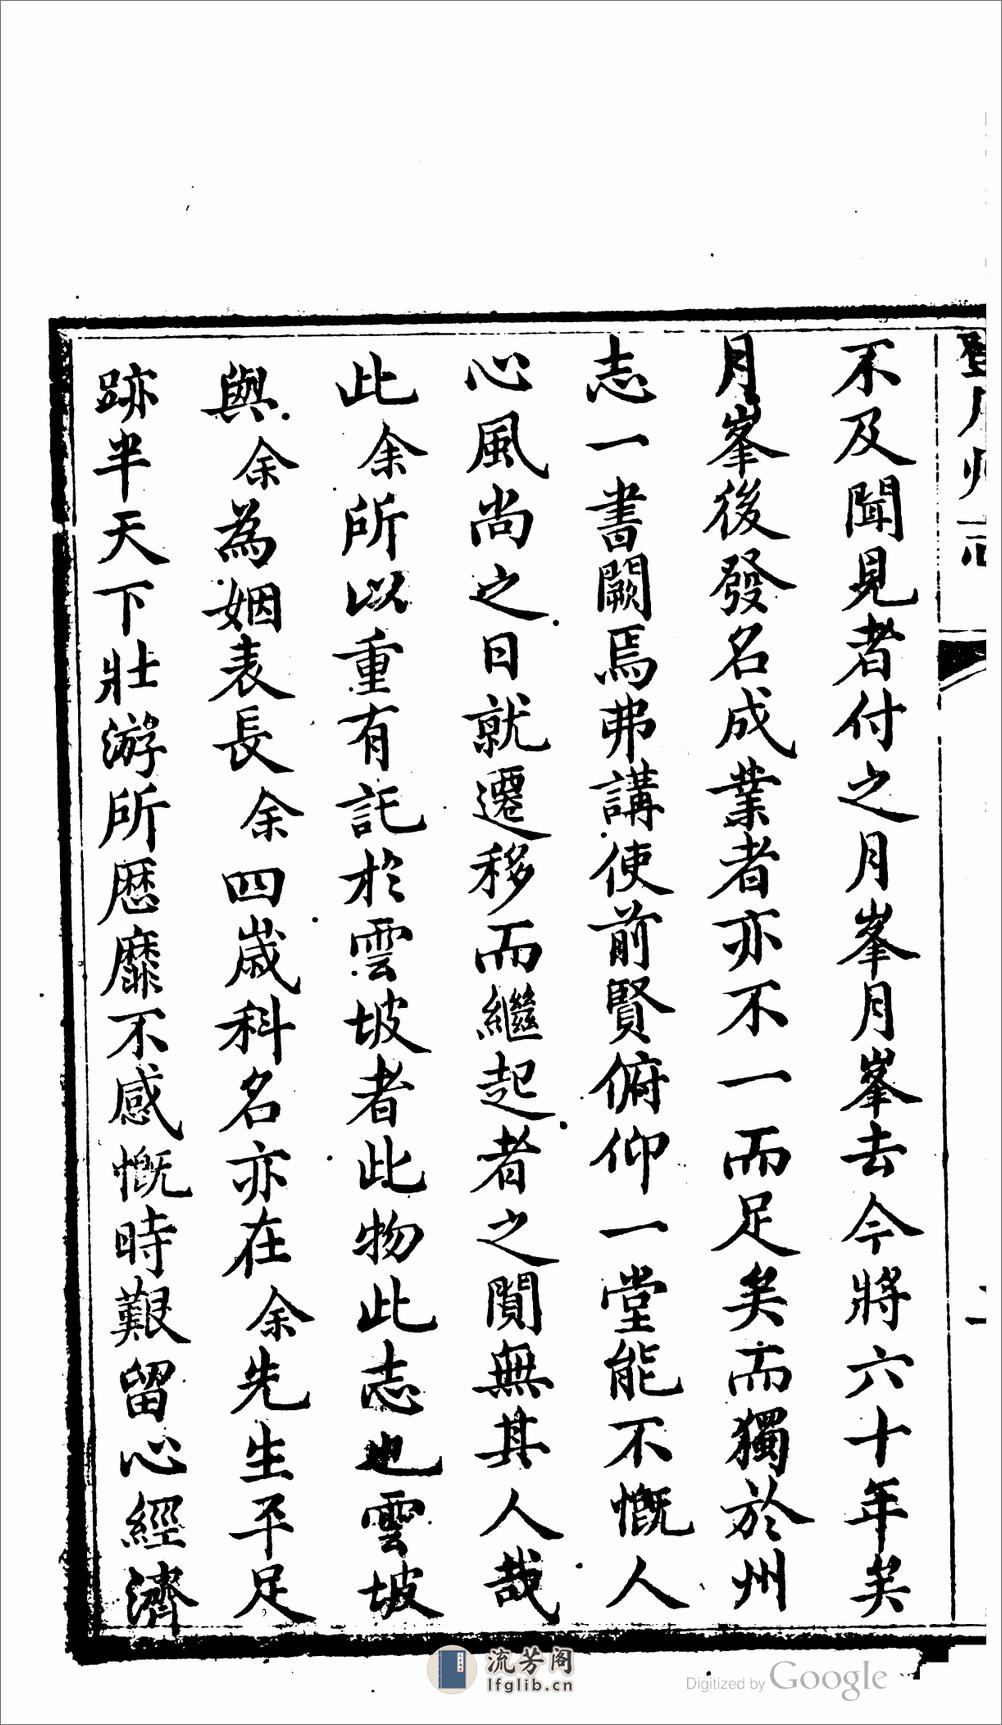 不及聞見者付之月峯月峯去今將六十年矣
月峯後發名成業者亦不一而足矣而獨於州
志一書闕焉弗講使前賢俯仰一堂能不慨人
心風尚之日就遷移而繼起者之閴無其人哉
此余所以重有託於雲坡者此物此志也雲坡
與余為姻表長余四歲科名亦在余先生平足
跡半天下壯游所歷靡不感慨時艱留心經濟
流芳阁
lfglib.cn
Digitized by Google